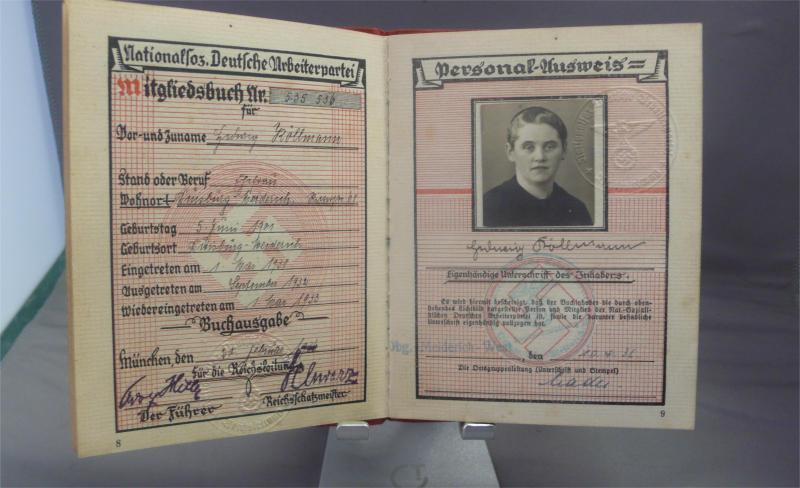 Nationalsoz. Deutsche Arbeiterpartei
Mitgliedsbuch Nr. 535 536
für
Vor- und Zuname Hedwig Röllmann
Stand oder Beruf Ehefrau
Wohnort Duisburg-Meiderich
Geburtstag 3. Juni 1901
Geburtsort Duisburg-Meiderich
Eingetreten am 1. Mai
Ausgetreten am September 1932
Wiedereingetreten am 1. Mai 1933
Buchausgabe
München, den Februar
für die Reichsleitung:
Schwarz
Der Führer
Reichsschatzmeister
8
Personal-Ausweis
Hedwig Röllmann
Eigenhändige Unterschrift des Inhabers.
Es wird hiermit bescheinigt, daß der Buchinhaber die durch oben-
stehendes Lichtbild dargestellte Person und Mitglied der Nat.-Sozial-
istischen Deutschen Arbeiterpartei ist, sowie die darunter befindliche
Unterschrift eigenhändig vollzogen hat.
Obg. Meiderich-West, den 10.4.36
Die Ortsgruppenleitung (Unterschrift und Stempel)
9